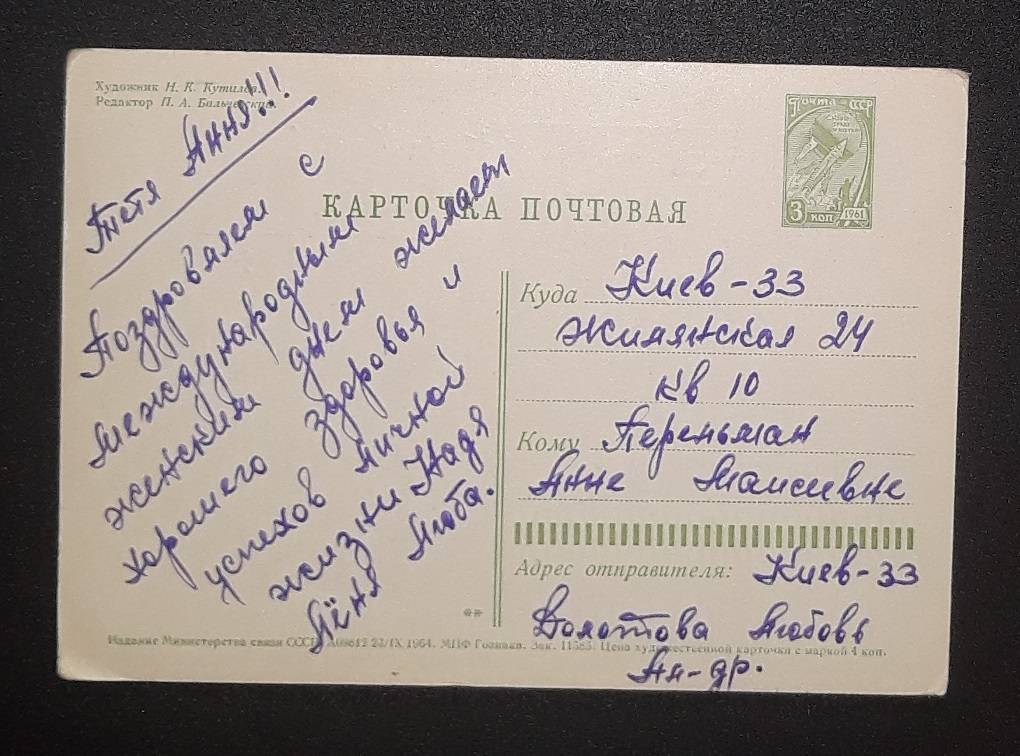 Художник Н. К. Кутилов.
Редактор П. А. Бальчевский.
Почта СССР
3 коп 1961
КАРТОЧКА ПОЧТОВАЯ
Тётя Ання!!!
Поздровляем с
международным
женским днем желаем
хорошего здоровья и
успехов личной
жизни Надя
Лёня Люба.
Куда Киев-33
Жилянская 24
кв 10
Кому Переньман
Анне Маисивне
Адрес отправителя: Киев-33
Долотова Любовь
Ал-др.
Издание Министерства связи СССР. 23/IX 1964. МПФ Гознака. Зак. 11585. Цена художественной карточки с маркой 4 коп.